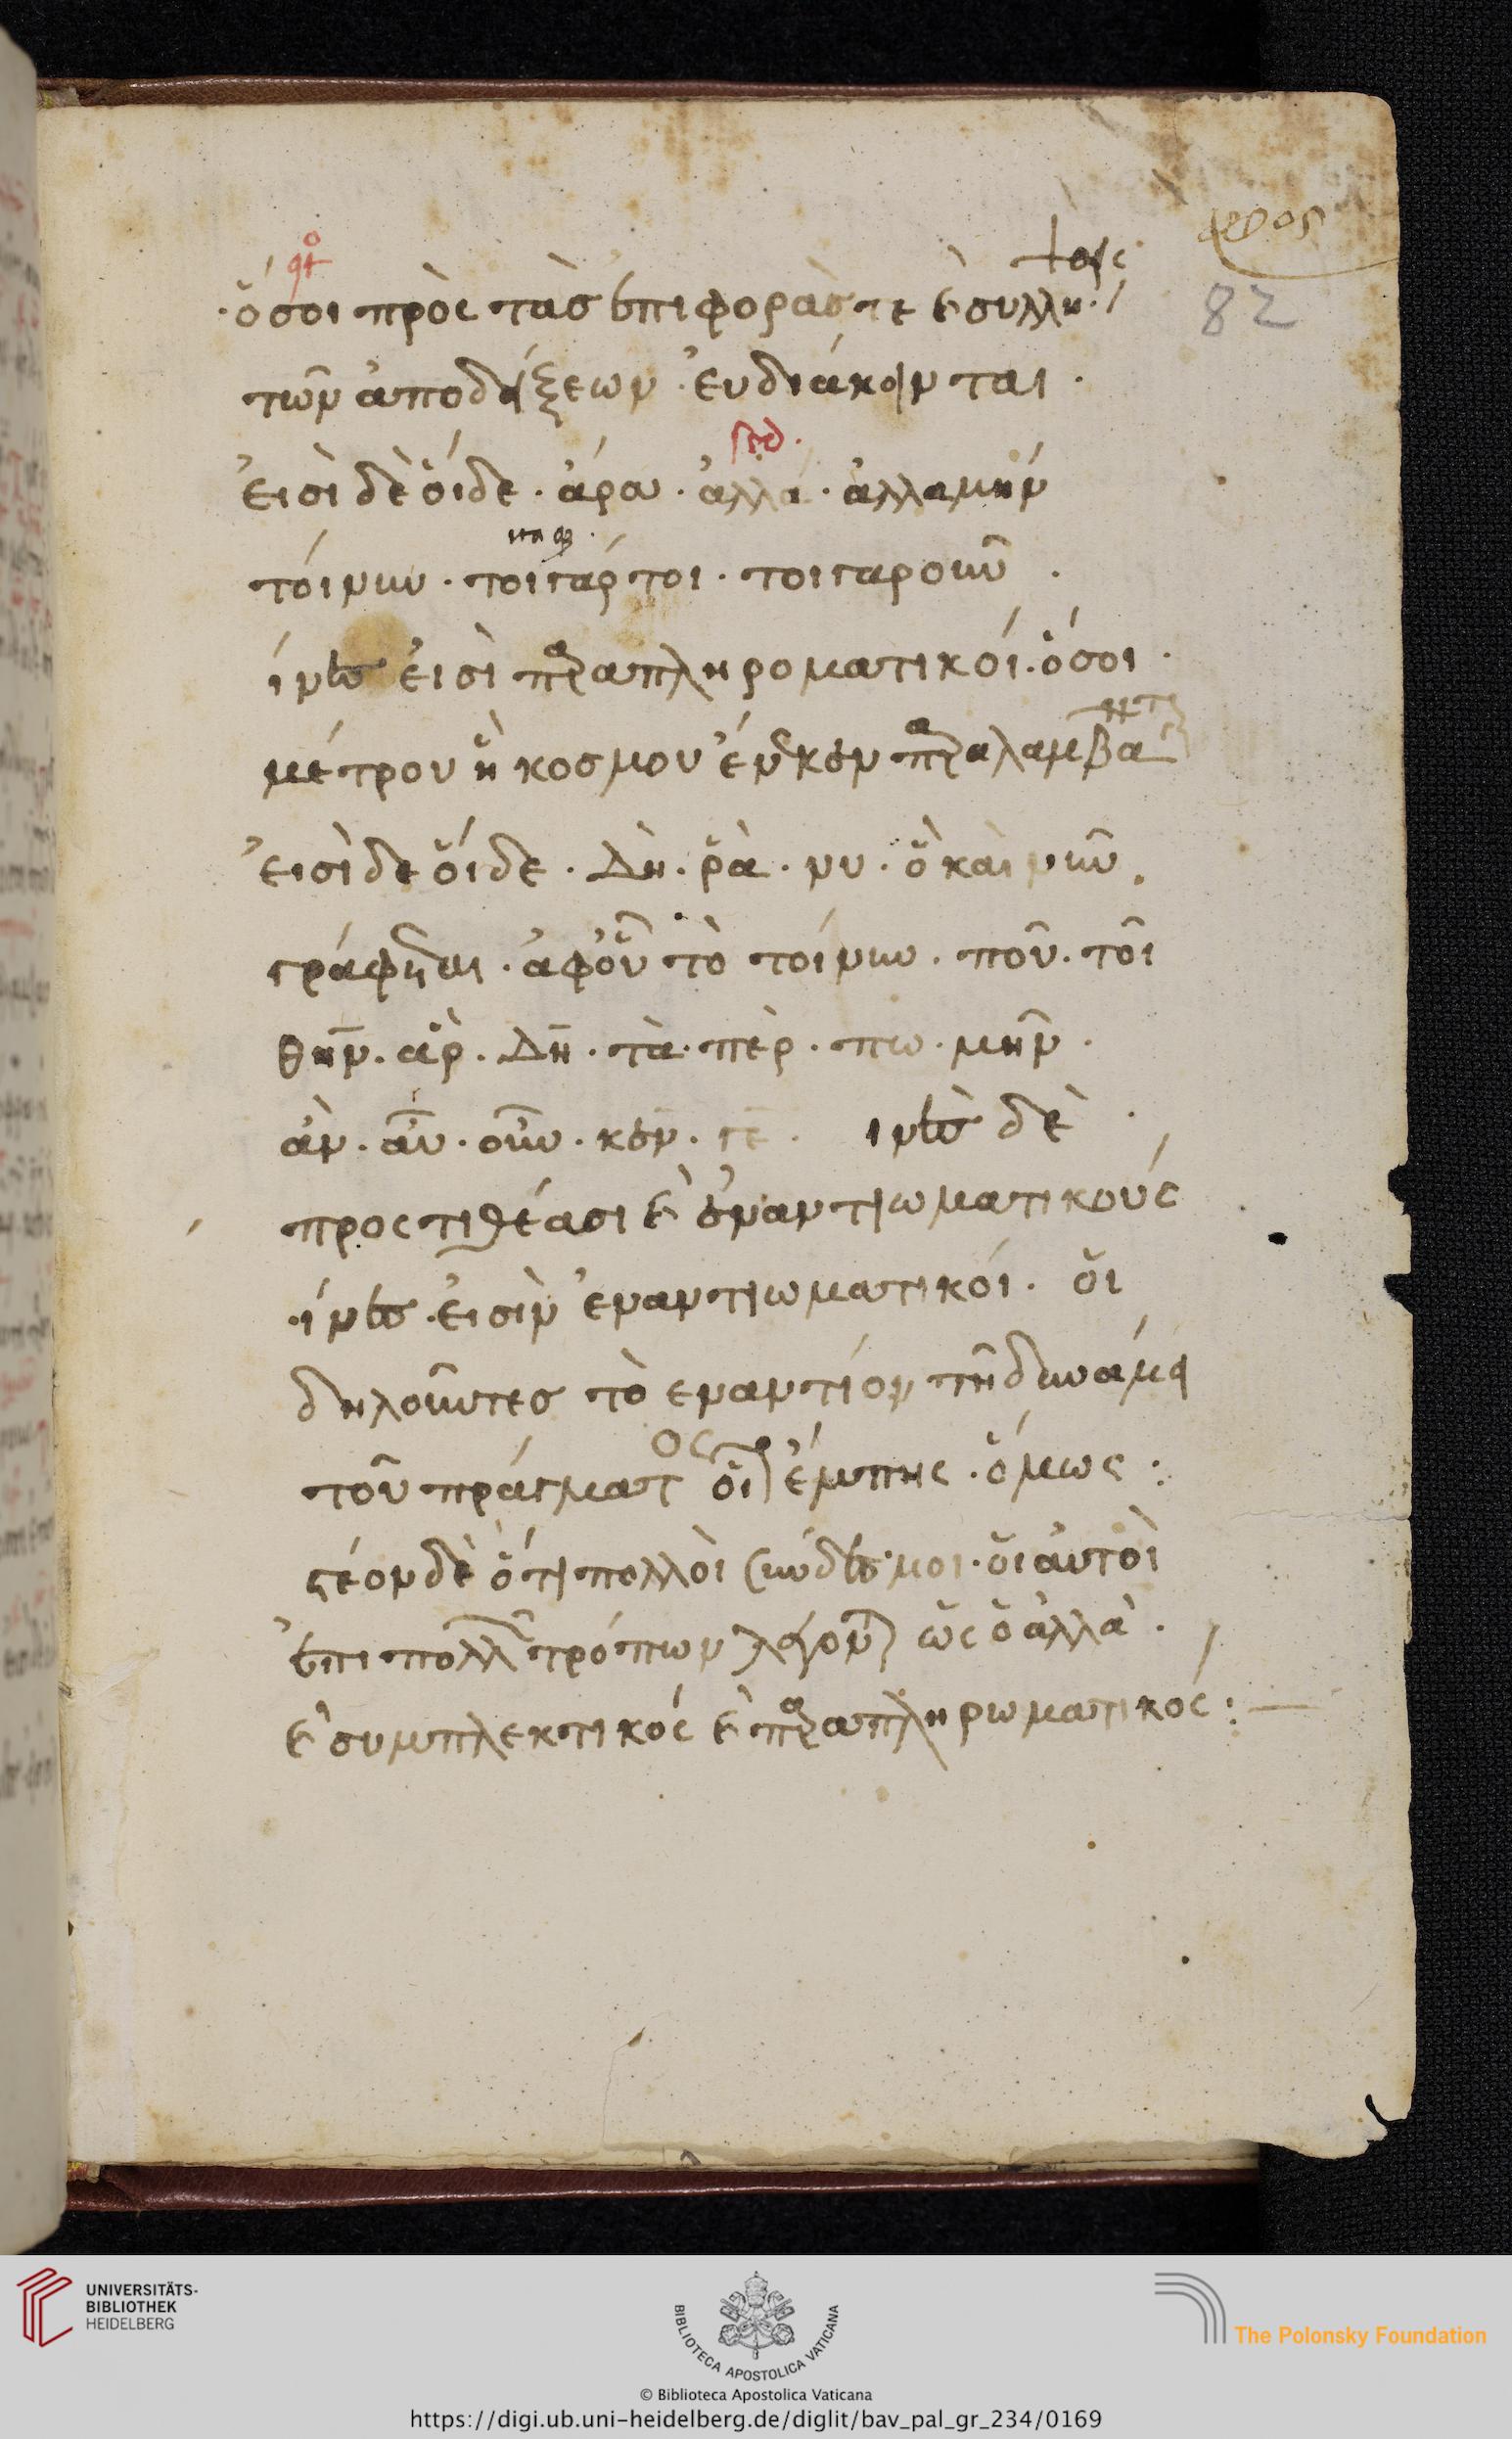 82
ὅσοι πρὸς τὰσ ἐπιφορὰσ τε κ συλλή
τῶν ἀποδείξεων εὐδιάκειν ται ·
εἰσὶ δὲ ὅίδε · ἄρα · ἀλλά · ἀλλαμήν
τόινυν · τοιγάρτοι · τοιγαροῦν ·
εἰσὶ παραπληροματικόι · ὅσοι ·
μέτρου ἢ κοσμου ἕνεκεν παραλαμβα
εἰσὶ δε ὅίδε · Δὴ · ῥὰ · νυ · ὃ καὶ νῦν ·
γράφεται · ἀφοὗ τὸ τοίνυν · ποῦ · τοῖ
θῆν · ἂρ · Δῆ · τὰ · πὲρ · πω · μῆν ·
ἂν · αὖ · οὖν · κεν · γε · δὲ
προστιθέασι κ ἐναντιωματικούς
εἰσὶν ἐναντιωματικόι · ὅι
δηλοῦντεσ τὸ εναντίον τῆ δυνάμει
τοῦ πράγματος ἔμπης · ὅμως :
τέον δὲ ὅτι πολλοὶ σύνδεσμοι · ὅι ἀυτοὶ
ἐπι πολλῶν τρόπων ὡς ὁ ἀλλὰ ·
κ συμπλεκτικός κ παραπληρωματικός : —
UNIVERSITÄTS-
BIBLIOTHEK
HEIDELBERG
BIBLIOTECA APOSTOLICA VATICANA
The Polonsky Foundation
© Biblioteca Apostolica Vaticana
https://digi.ub.uni-heidelberg.de/diglit/bav_pal_gr_234/0169